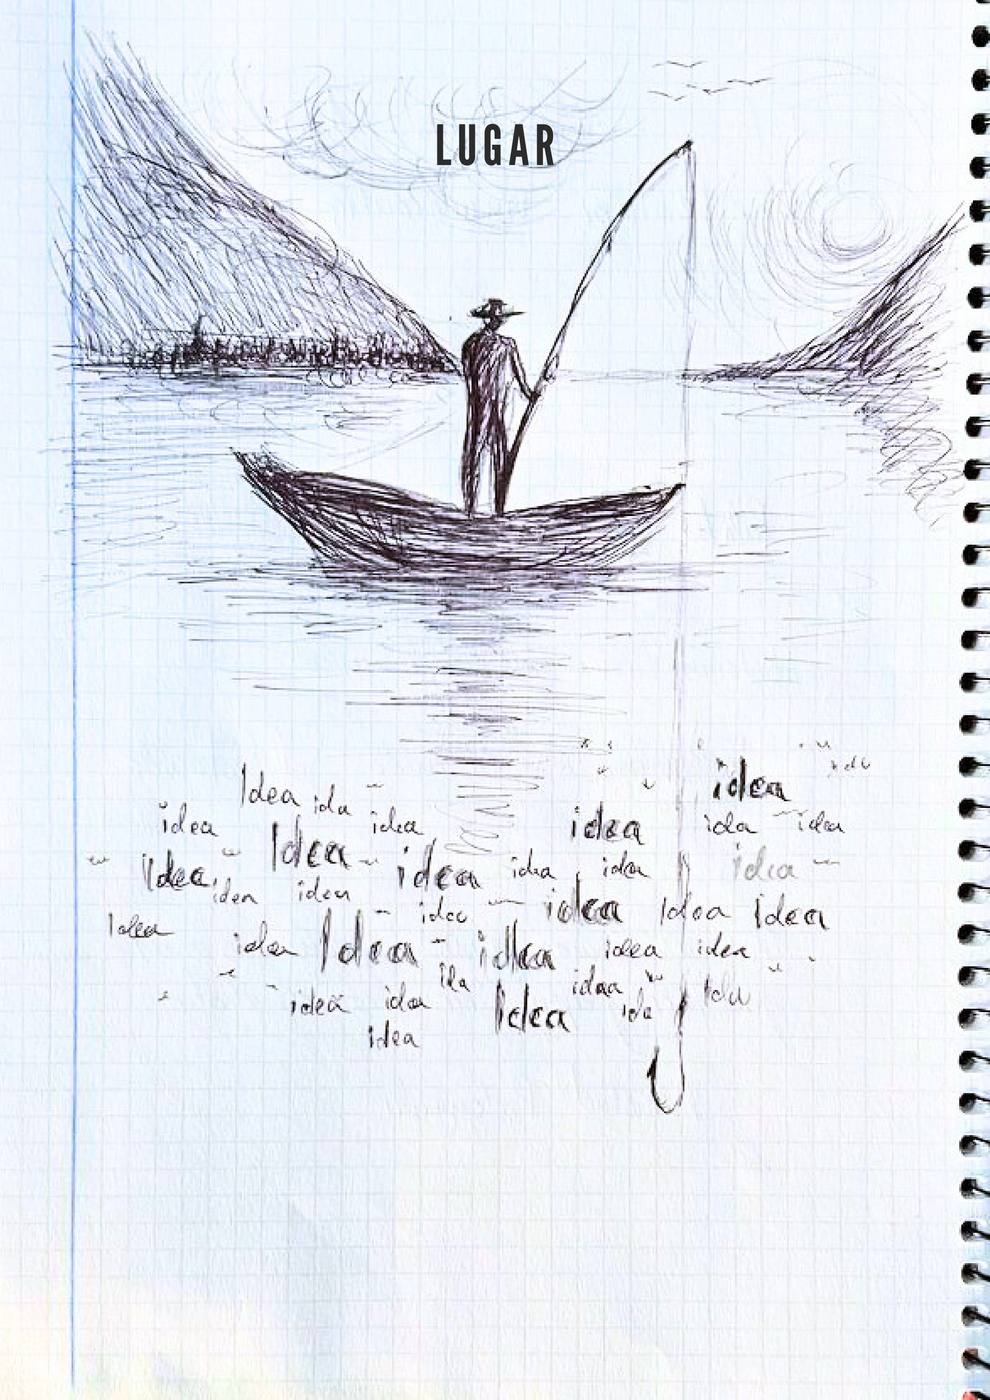 LUGAR
idea
Idea ida
idea idea idea ida idea
Idea idea idea idea idea
Idea idea idea idea idea Idea Idea
Idea idea Idea idea idea idea
ida idea
idea idea Idea ida Idea
idea